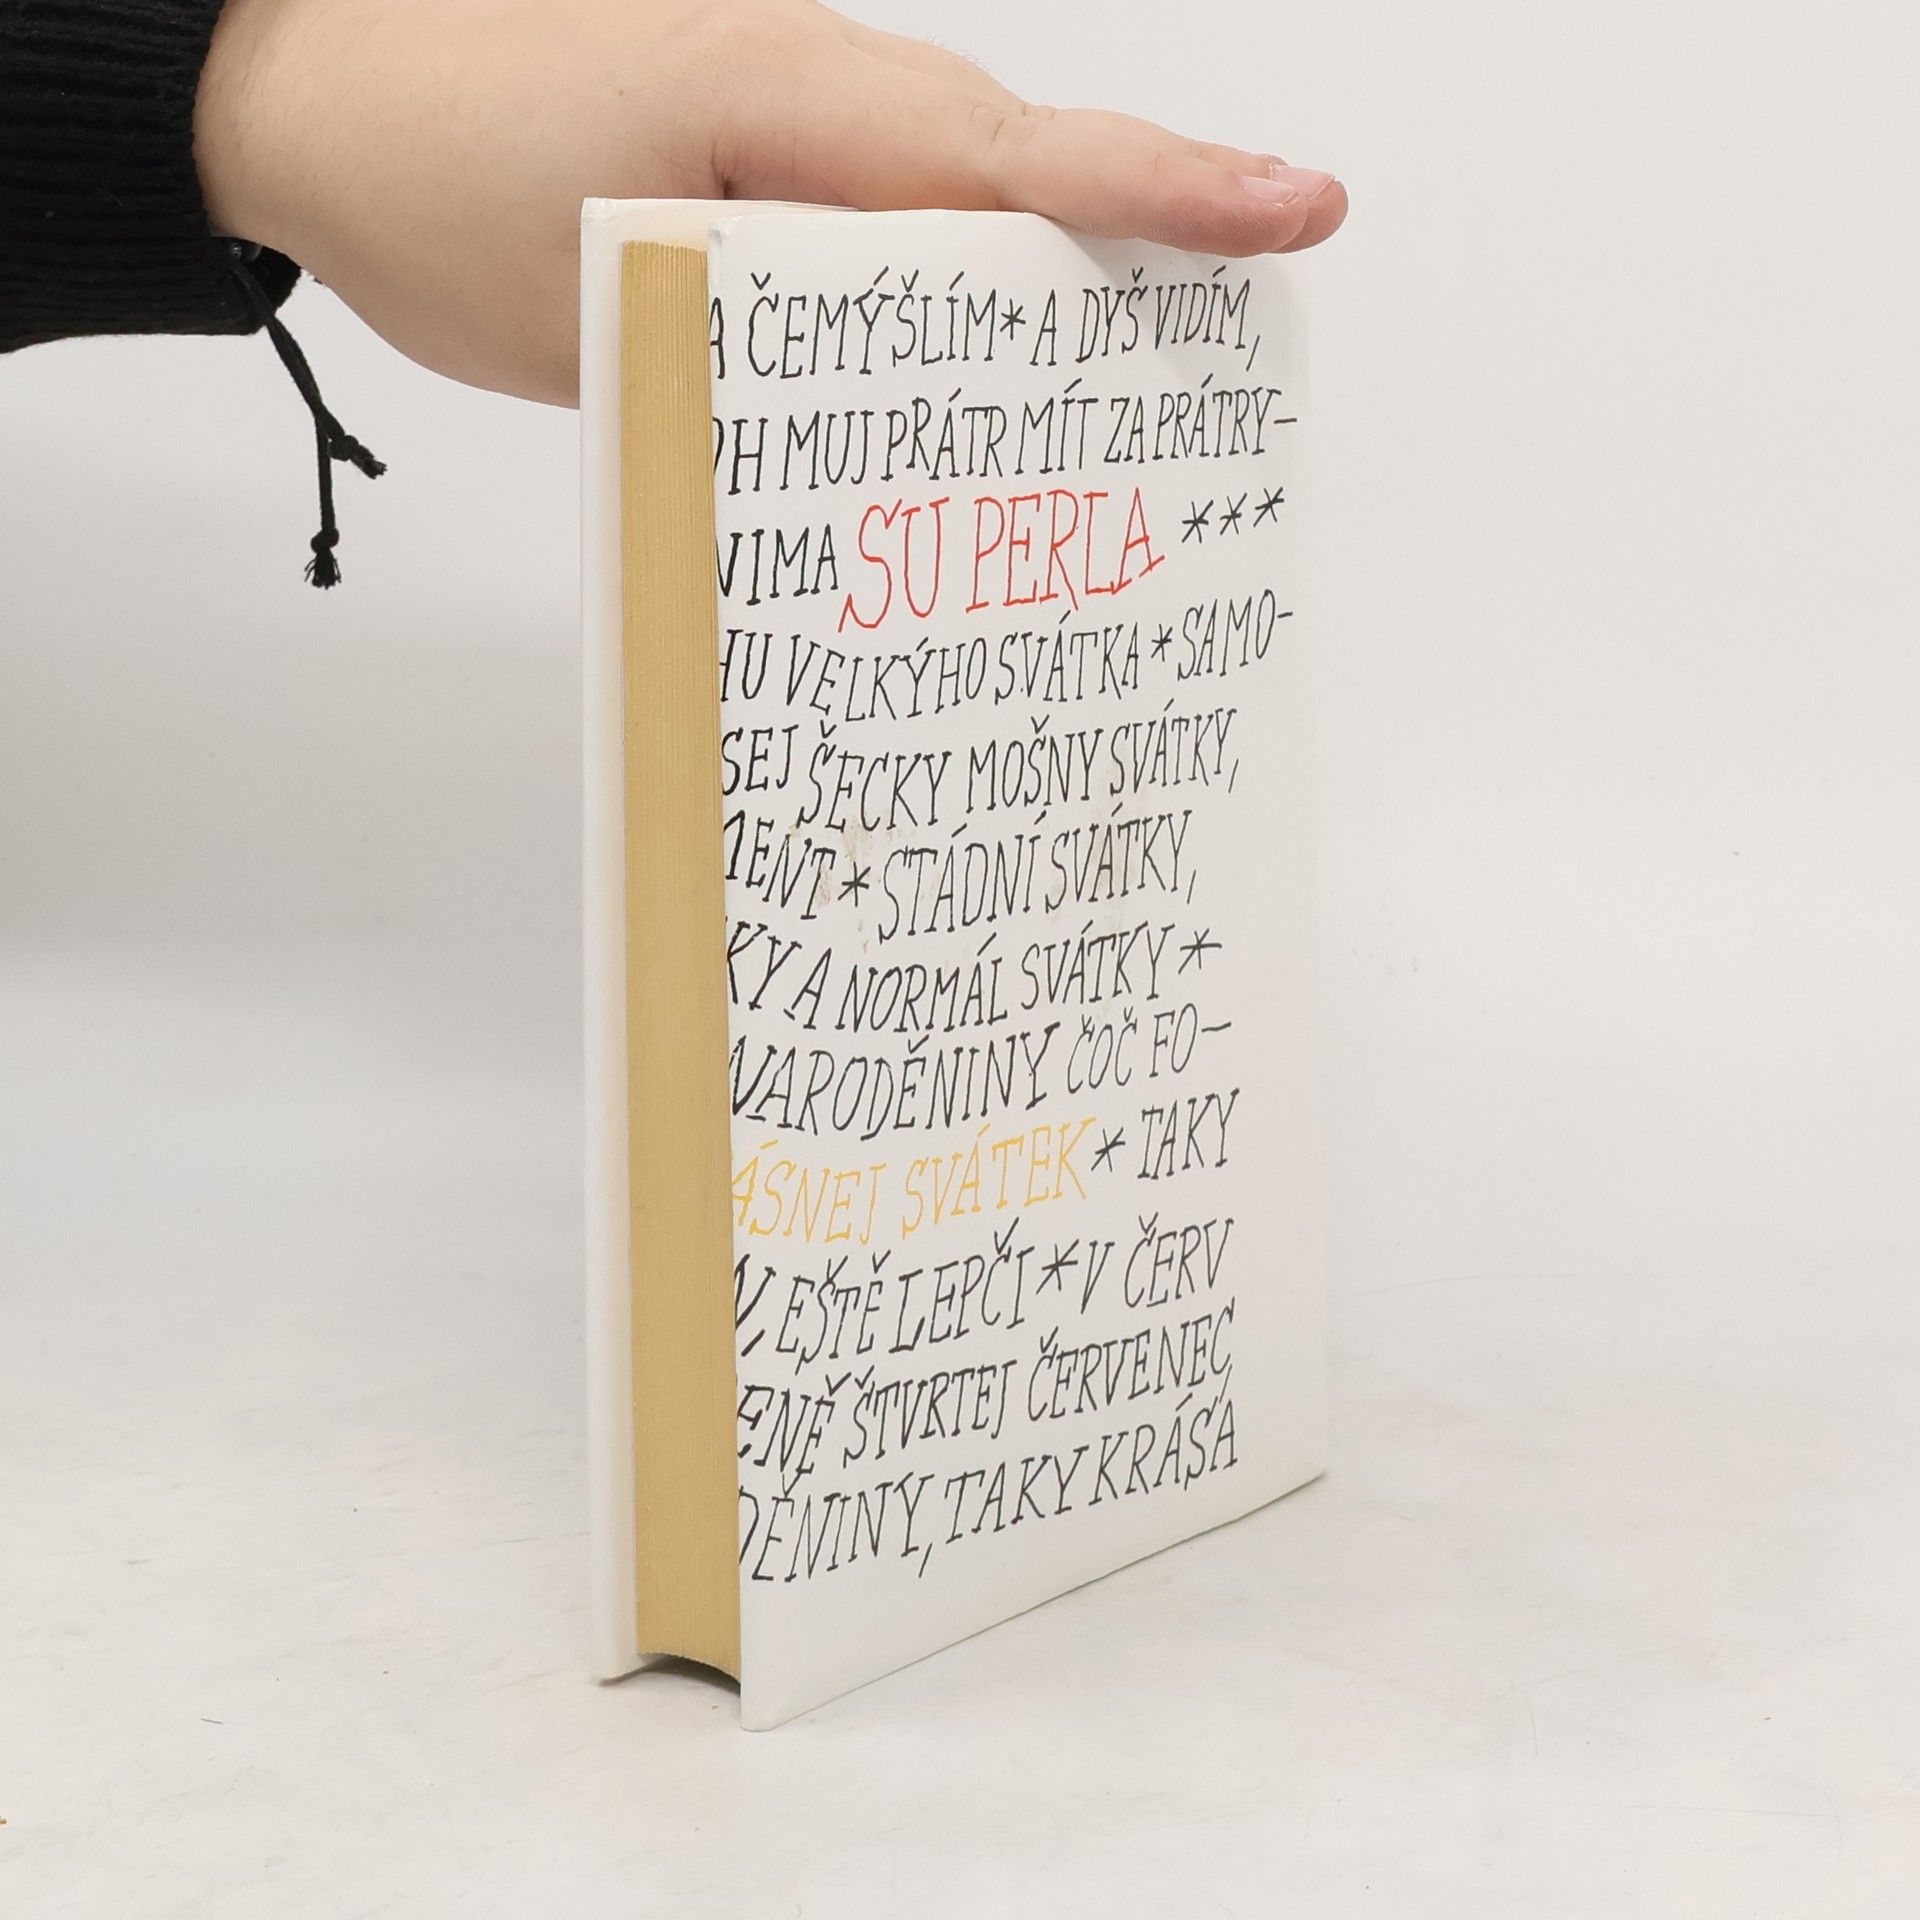 A ČEMÝŠLÍM * A DYŠ VIDÍM,
MUJ PRÁTR MÍT ZA PRÁTRY-
SU PERLA ***
VELKÝHO SVÁTKA * SAMO-
SEJ ŠECKY MOŠNY SVÁTKY,
MENT * STÁDNÍ SVÁTKY,
KY A NORMÁL SVÁTKY *
NARODĚNINY ČOČ FO-
ÁSNEJ SVÁTEK * TAKY
EŠTĚ LEPČI * V ČERV
ENĚ ŠTVRTEJ ČERVENEC,
DĚNINY, TAKY KRÁSA